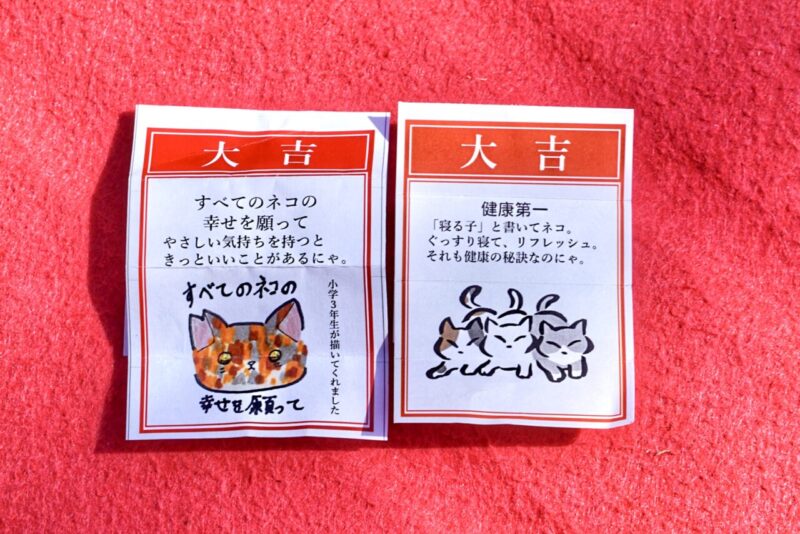 大吉
すべてのネコの
幸せを願って
やさしい気持ちを持つと
きっといいことがあるにゃ。
すべてのネコの
幸せを願って
小学3年生が描いてくれました
大吉
健康第一
「寝る子」と書いてネコ。
ぐっすり寝て、リフレッシュ。
それも健康の秘訣なのにゃ。